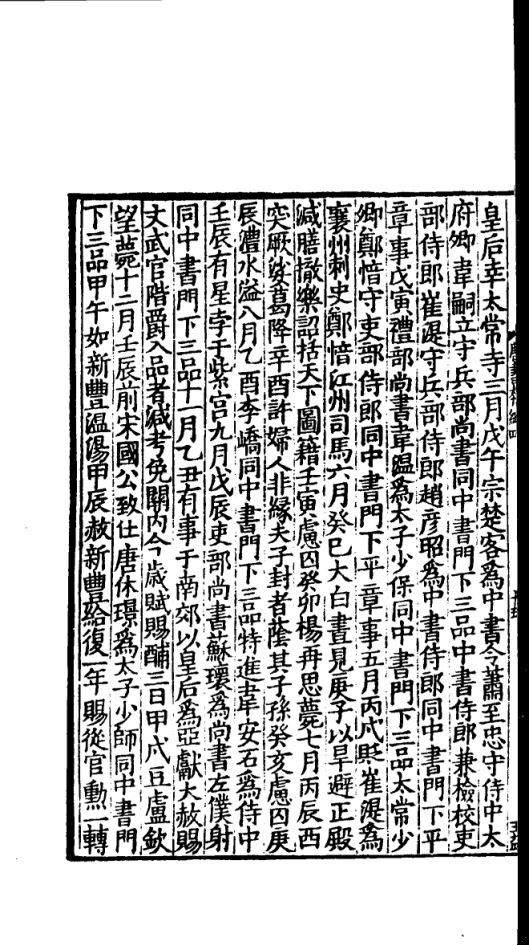 皇后幸太常寺三月戊午宗楚客爲中書令蕭至忠守侍中太
府卿韋嗣立守兵部尚書同中書門下三品中書侍郎兼檢校吏
部侍郎崔湜守兵部侍郎趙彦昭爲中書侍郎同中書門下平
章事戊寅禮部尚書韋溫爲太子少保同中書門下三品太常少
卿鄭愔守吏部侍郎同中書門下平章事五月丙戌貶崔湜爲
襄州刺史鄭愔江州司馬六月癸巳大白晝見庚子以旱避正殿
減膳撤樂詔括天下圖籍壬寅慮囚癸卯楊再思薨七月丙辰西
突厥娑葛降辛酉許婦人非緣夫子封者蔭其子孫癸亥慮囚庚
辰澧水溢八月乙酉李嶠同中書門下三品特進韋安石爲侍中
壬辰有星孛于紫宫九月戊辰吏部尚書蘇瓌爲尚書左僕射
同中書門下三品十一月乙丑有事于南郊以皇后爲亞獻大赦賜
文武官階爵入品者減考免關内今歲賦賜酺三日甲戌豆盧欽
望薨十二月壬辰前宋國公致仕唐休璟爲太子少師同中書門
下三品甲午如新豐溫湯甲辰赦新豐給復一年賜從官勳一轉